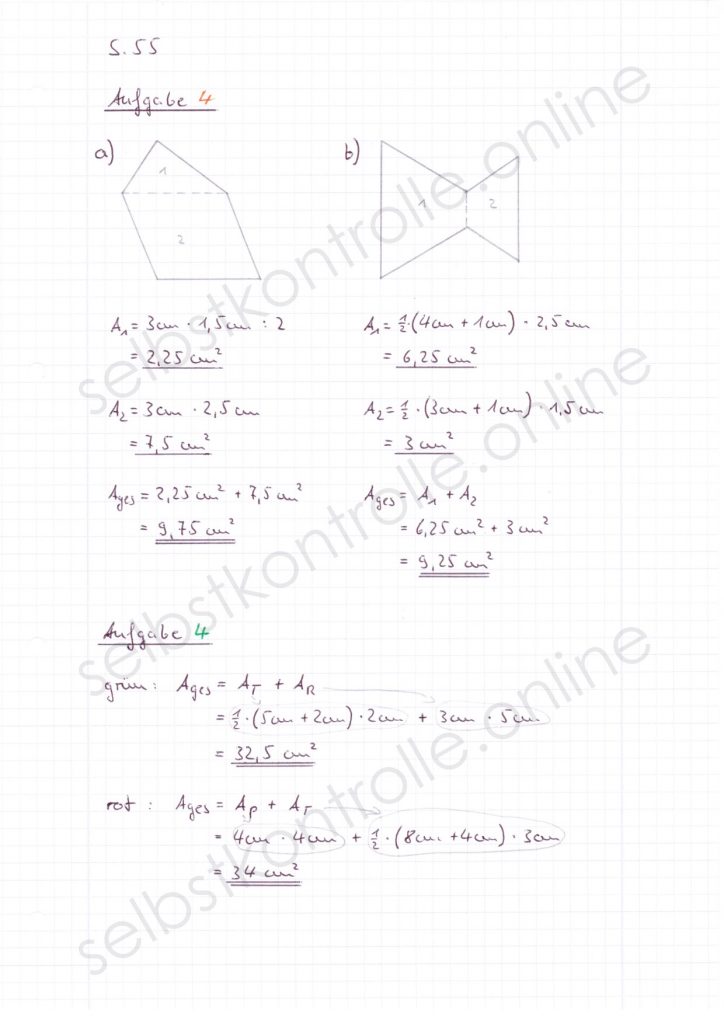 S. 55
Aufgabe 4
a)
b)
1
2
1
2
A₁ = 3cm · 1,5cm : 2
= 2,25 cm²
A₂ = 3cm · 2,5cm
= 7,5 cm²
Ages = 2,25cm² + 7,5 cm²
= 9,75 cm²
A₁ = ½·(4cm + 1cm) · 2,5cm
= 6,25 cm²
A₂ = ½·(3cm + 1cm) · 1,5cm
= 3cm²
Ages = A₁ + A₂
= 6,25cm² + 3cm²
= 9,25 cm²
Aufgabe 4
grün: Ages = A_T + A_R
= ½·(5cm + 2cm) · 2cm + 3cm · 5cm
= 32,5 cm²
rot: Ages = A_P + A_T
= 4cm · 4cm + ½·(8cm + 4cm) · 3cm
= 34 cm²
selbstkontrolle.online
selbstkontrolle.online
selbstkontrolle.online